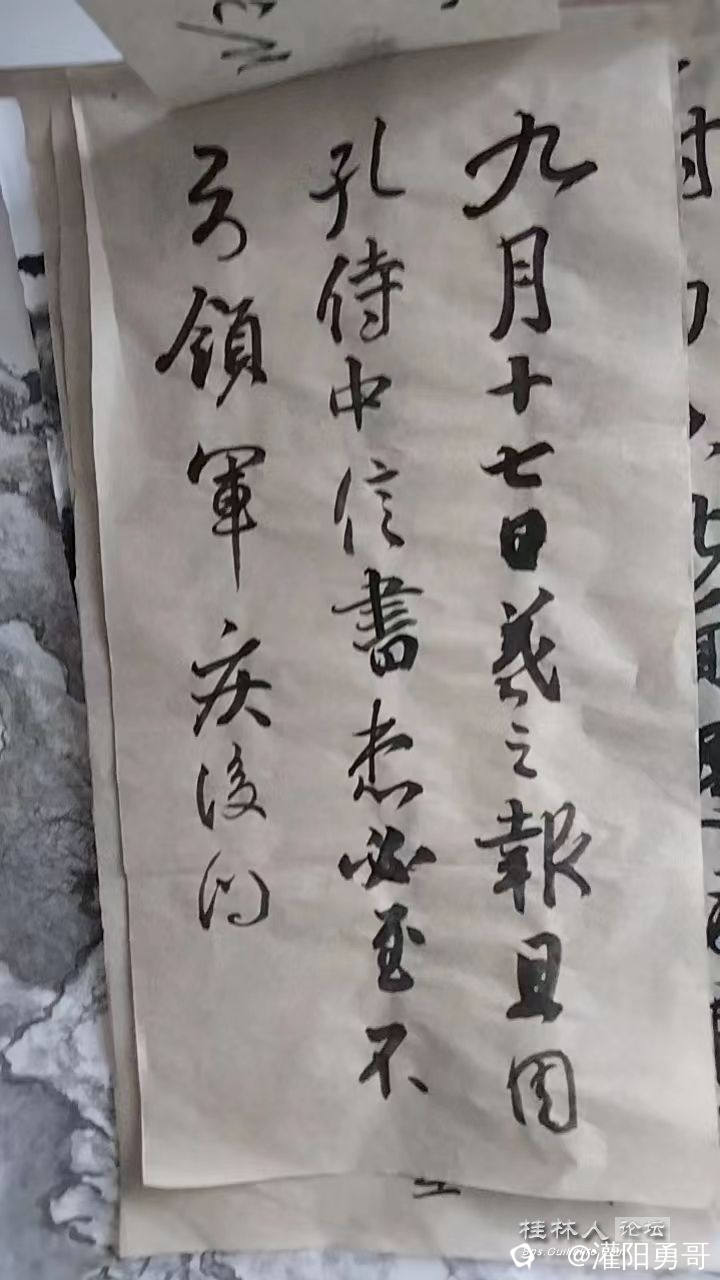 九月十七日羲之報且因
孔侍中信書想必至不
知領軍疾後問
桂林人论坛
@灌阳勇哥